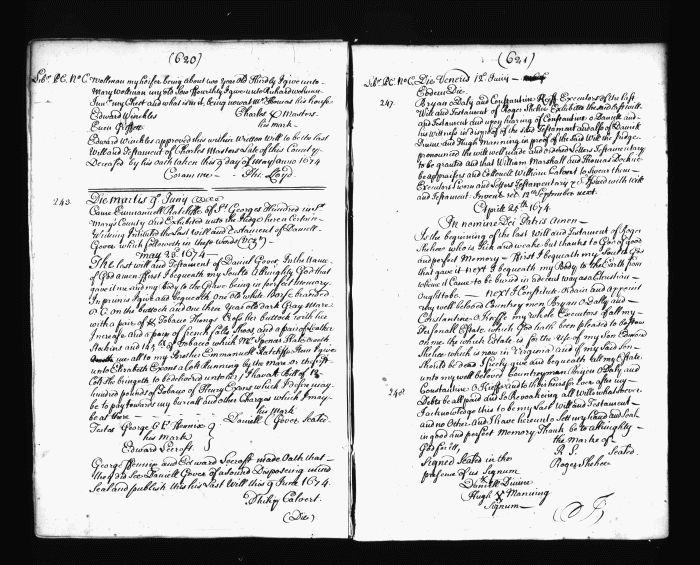 (620)
Lib. P.C. No. C. Wottman my heifer being about two year old Thirdly I give unto
Mary Wottman my old Cow fourthly I give unto Richard
my Chest and what is in it, being now at Mr. Thomas his house
Edward Winckles Charles X Masters
Evan Griffith his mark
Edward Winckles approved this within Written Will to be the last
Will and Testament of Charles Masters Late of this County
Deceased by his oath taken this 9 day of May Anno 1674
Coram me Jno. Lloyd.
243. Die Martis 9 Junij
Came Emmanuell Ratcliffe of St. Georges Hundred in St.
Mary's County and Exhibited unto the Judge here a Certain
Writing Intituled the Last Will and Testament of Daniell
Gover which followeth in these words (Vizt)
May 28 1674
The last will and Testament of Daniel Gover In the name
of God amen ffirst I bequeath my Soul to Almighty God that
gave it me and my Body to the Grave being in perfect memory
In primis I give and bequeath One old white horse branded
on the buttock and one three year old dark Gray Mare
with a pair of Tobacco Thongs Cross her buttock with his
Increase and a pair of french falls Shoes and a pair of Leather
Stockins and 14 lb of Tobacco which Mr. Spencer
me all to my Brother Emmanuell Ratcliffe Item I give
unto Elizabeth Evans a Colt Running by the Mare or the first
Colt she brings to be delivered unto her, I have a Bill of 12
hundred pounds of Tobacco of Henry Evans which I desire may
be to pay towards my buriall and other Charges which I may
be at there his mark
Testes George G E Hennice Daniell C Gover Sealed
his mark
Edward Seecroft
George Hennice and Edward Seecroft made Oath that
they did See Daniell Gover of a sound Disposeing mind
Seal and publish this his last Will this 9 June 1674.
Philip Calvert.
(Die)
(621)
Lib. P.C. No. C. Die Veneris 12 Junij
Eodem Die
247. Bryan o Daly and Constantine o Keiffe Executors of the last
Will and Testament of Roger Shehee Exhibited the said last will
and Testament and upon hearing of Constantine
his witness in disproof of the said Testament and also of Daniell
Divine and Hugh Manning in proof of the said Will the Judge
pronounced the will well made and ordered Letters Testamentary
to be granted and that William Marshall and Thomas
be appraisers and Collonell William Calvert to Swear them
Executors sworn and Letters Testamentary &c. Issued with
and Testament Inventory &c. 12th September next.
Aprill 28th 1674.
In nomine Dei Patris Amen
Is the beginning of the last Will and Testament of Roger
Shehee who is Sick and weake but thanks to God of good
and perfect Memory - ffirst I bequeath my Soul to God
that gave it next I bequeath my Body to the Earth from
whence it Came to be buried in decent way as a Christian
Ought to be. next I Constitute Ordain and appoint
my well beloved Countreymen Bryan o Daly and
Constantine o Keiffe my whole Executors of all my
Personall Estate, which God hath been pleased to bestow
on me the which Estate is for the Use of my Son Edward
Shehee which is now in Virginia and if my said Son
should be dead I freely give and bequeath all my Estate
unto my well beloved Countreymen Bryan o Daly and
248 Constantine o Keiffe and to their heirs for Ever after my
Debts be all paid and so Revoakeing all Wills whatsoever
I acknowledge this to be my Last Will and Testament
and no Other. And I have hereunto Sett my hand and Seal
in good and perfect Memory, Thanks be to Allmighty
God for itt, the marke of
Signed Sealed in the R. S. Sealed.
presence of us Signum Roger Shehee
Daniell Divine
Hugh X Manning
Signum